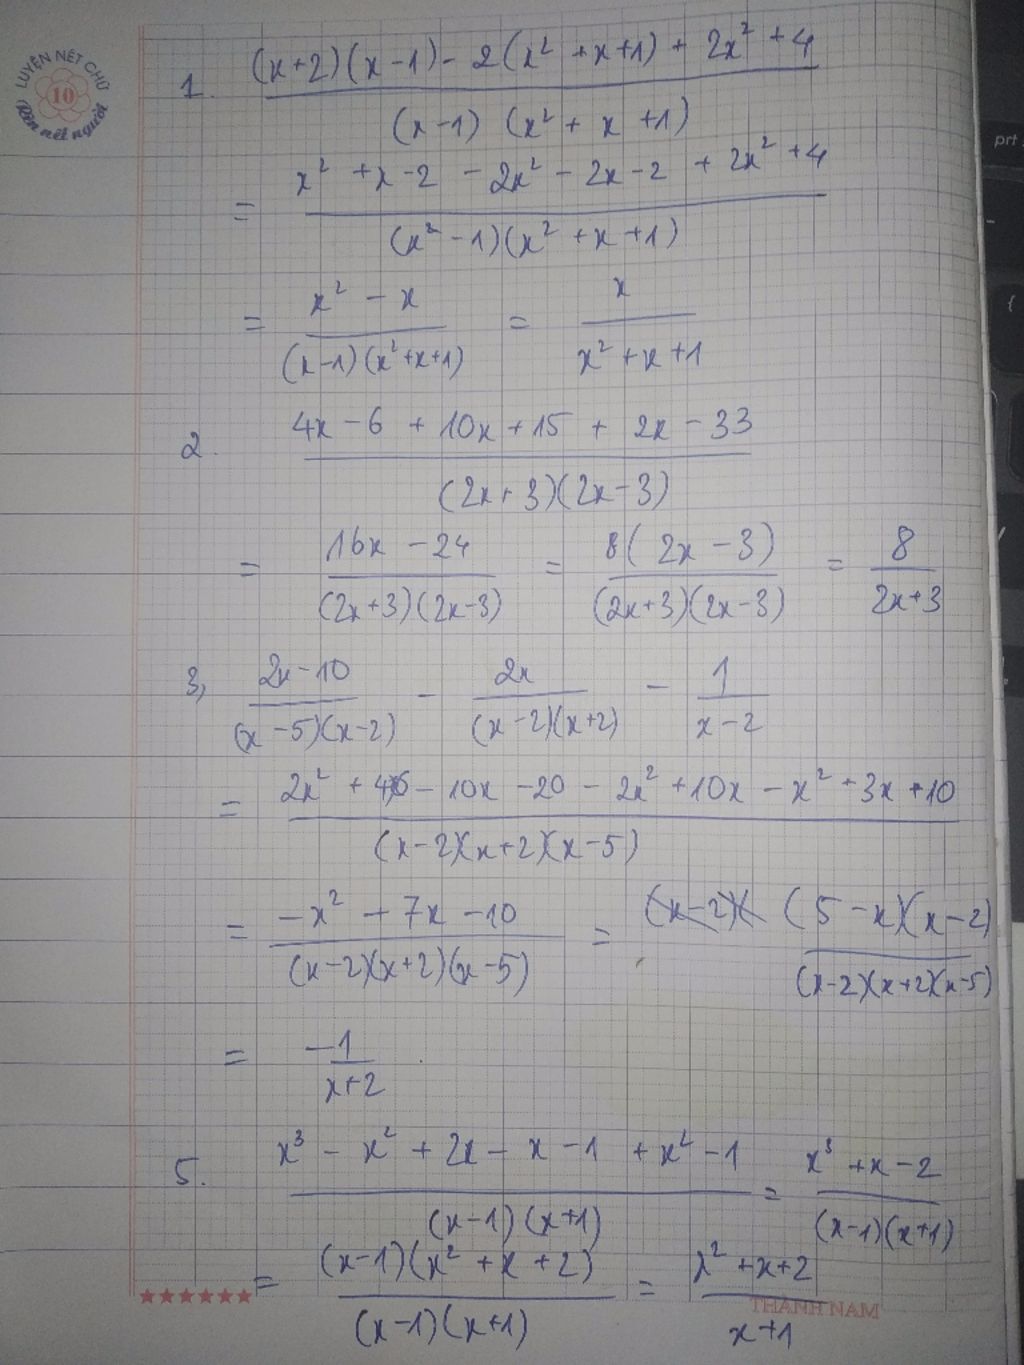 LUYỆN NÉT CHỮ
10
Rèn nết người
prt
1. ((x+2)(x-1) - 2(x² + x+1) + 2x² + 4) / ((x-1) (x² + x +1))
= (x² + x - 2 - 2x² - 2x - 2 + 2x² + 4) / ((x² - 1)(x² + x + 1))
= (x² - x) / ((x-1)(x²+x+1)) = x / (x² + x + 1)
2. (4x - 6 + 10x + 15 + 2x - 33) / ((2x+3)(2x-3))
= (16x - 24) / ((2x+3)(2x-3)) = 8(2x - 3) / ((2x+3)(2x-3)) = 8 / (2x+3)
3, (2x-10) / ((x-5)(x-2)) - 2x / ((x-2)(x+2)) - 1 / (x-2)
= (2x² + 4x - 10x - 20 - 2x² + 10x - x² + 3x + 10) / ((x-2)(x+2)(x-5))
= (-x² + 7x - 10) / ((x-2)(x+2)(x-5)) = (5-x)(x-2) / ((x-2)(x+2)(x-5))
= -1 / (x+2)
5. (x³ - x² + 2x - x - 1 + x² - 1) / ((x-1)(x+1)) = (x³ + x - 2) / ((x-1)(x+1))
= (x-1)(x² + x + 2) / ((x-1)(x+1)) = (x² + x + 2) / (x+1)
THÀNH NAM